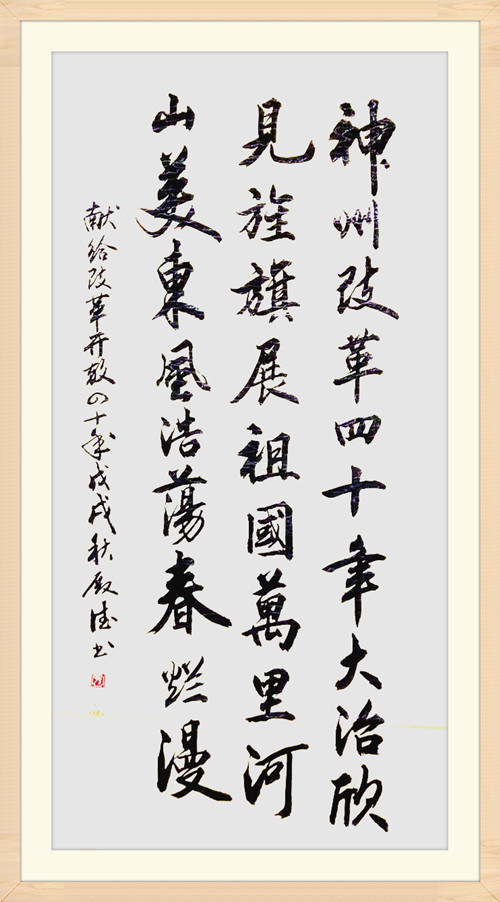 神州改革四十年大治欣
見旌旗展祖國萬里河
山美東風浩蕩春烂漫
献给改革开放四十年戊戌秋殿法书